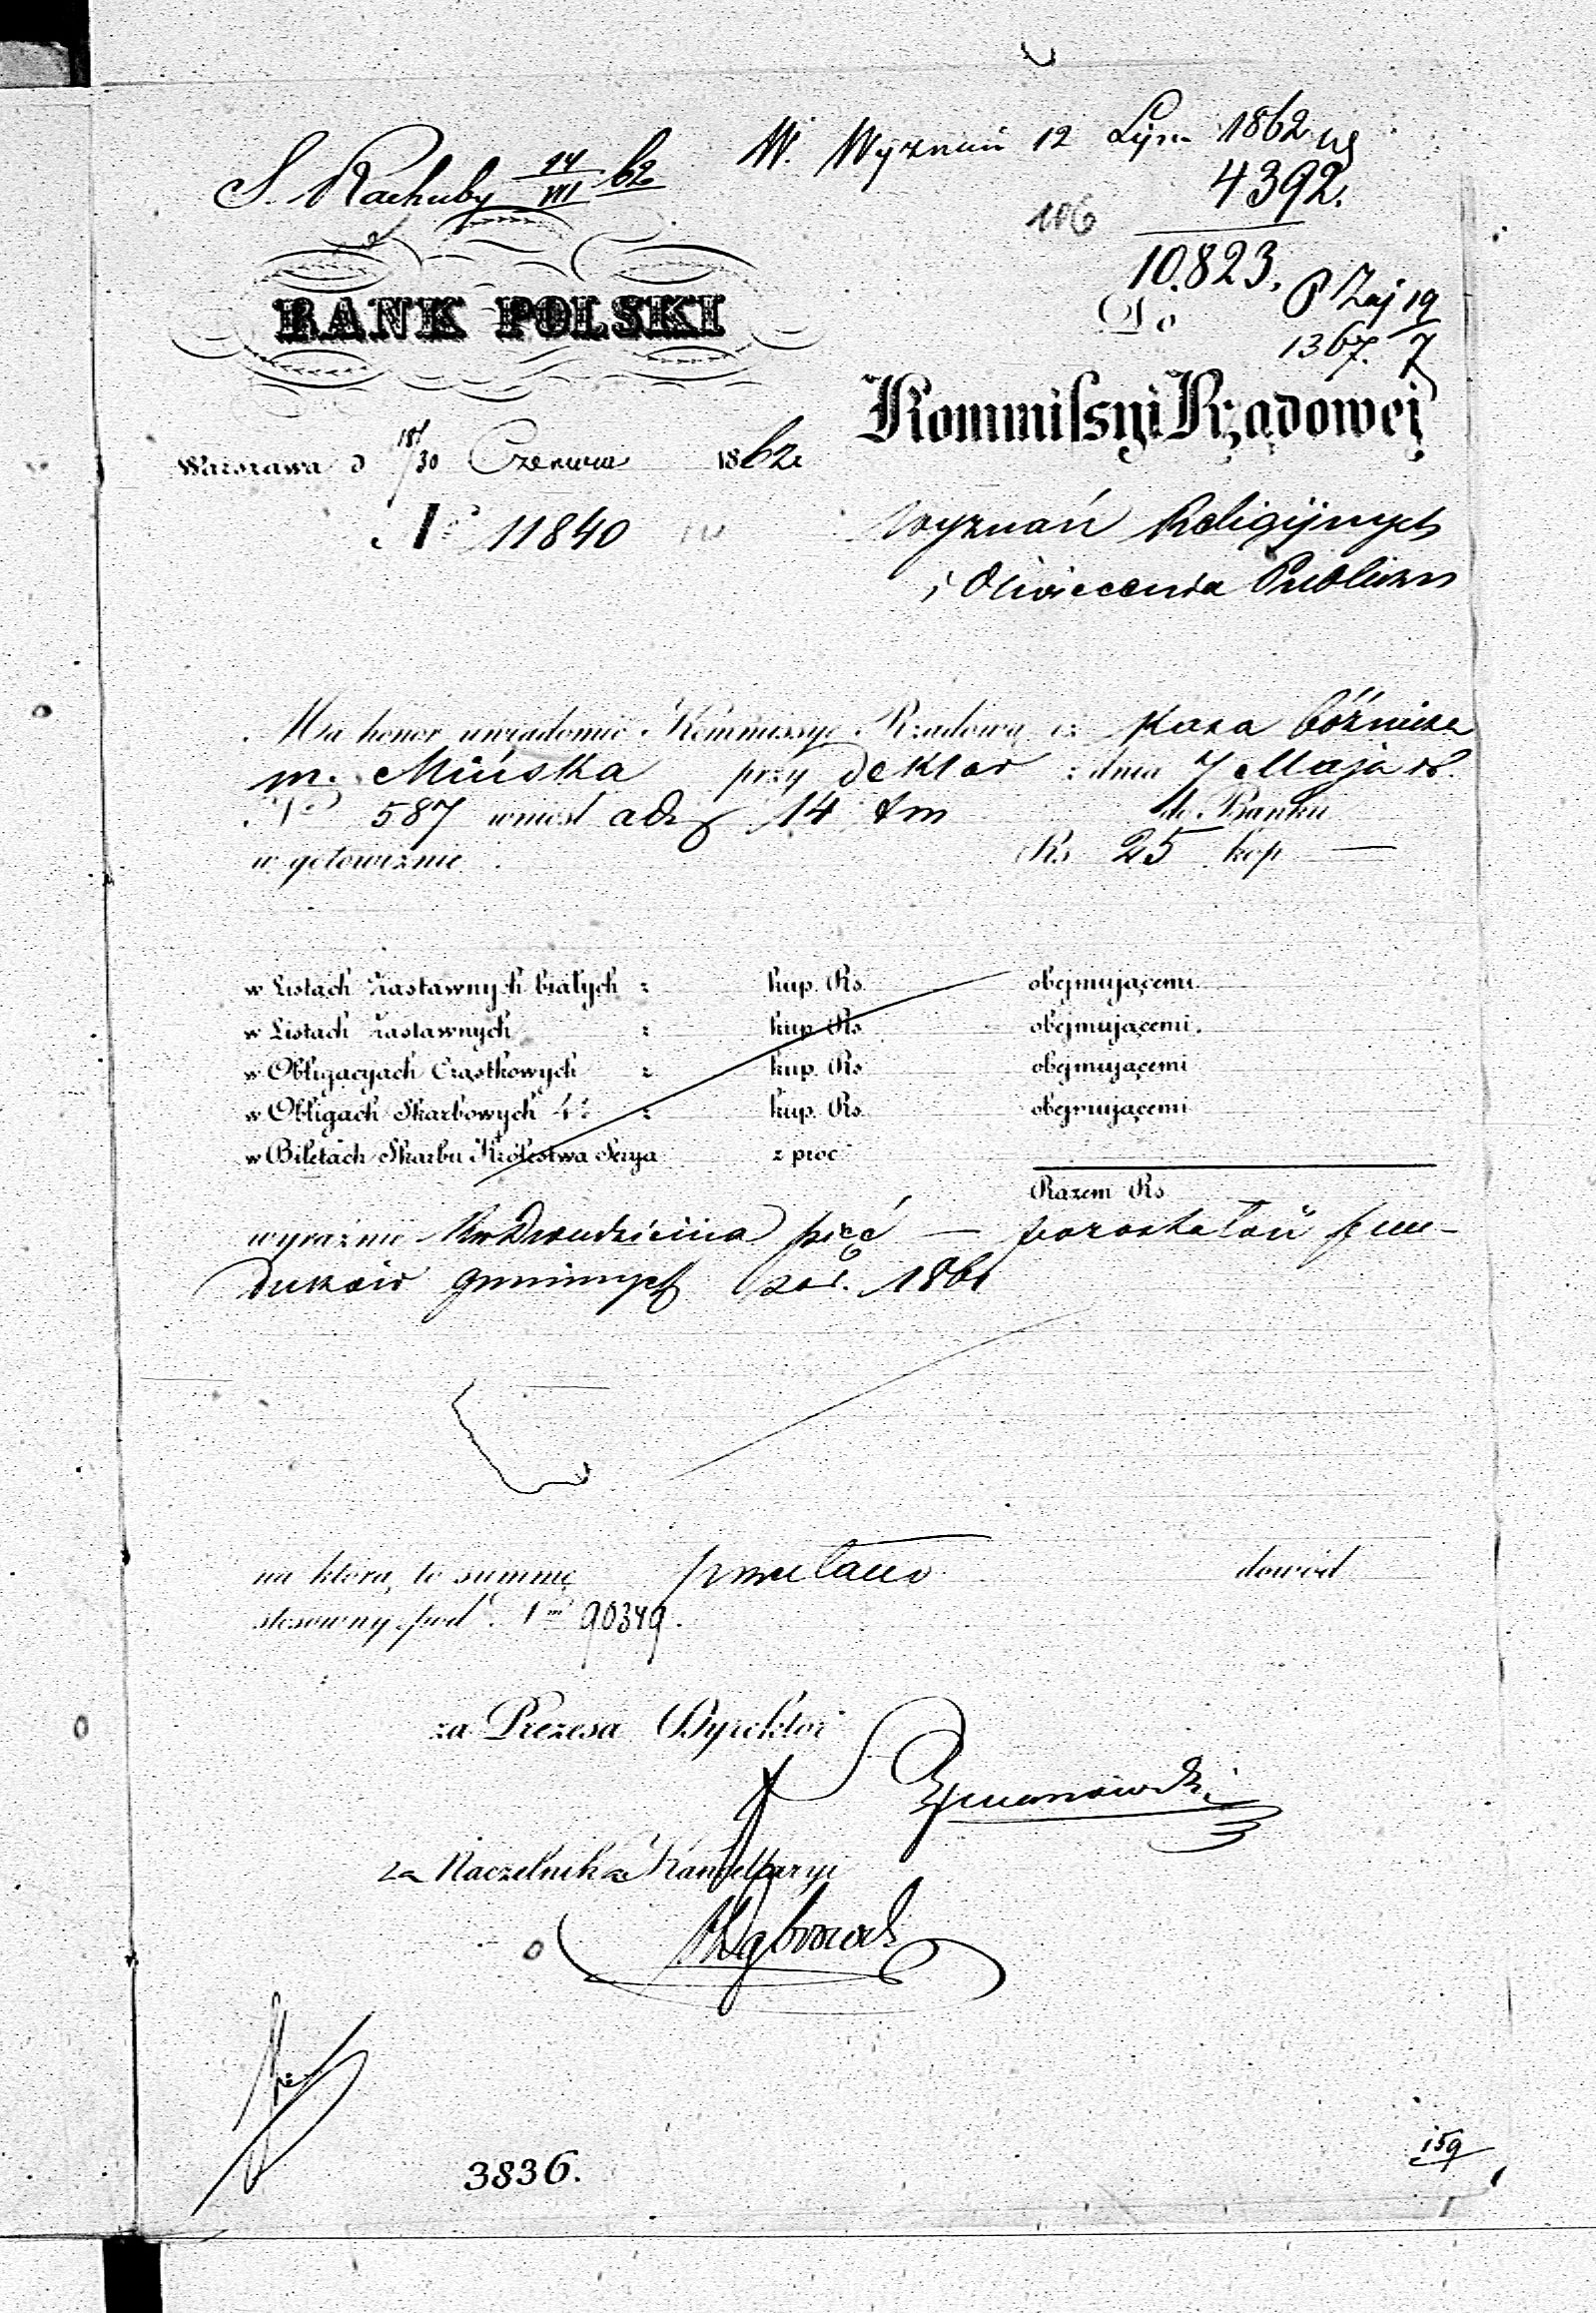 S. Rachuby 14/VII 62
W. Wyznań 12 Lipca 1862
4392.
106
10.823.
P Zaj 19/7
1367.
BANK POLSKI
Do
Kommissyi Rządowej
Warszawa d 18/30 Czerwca 1862
No 11840
Wyznań Religijnych
i Oświecenia Publiczn
Ma honor uwiadomić Kommissyę Rządową, iż Kasa bóżnicza
m. Mińska przy deklar z dnia 7 Maja rb.
No 587 wniosł a d 14 tm do Banku
w gotowiznie Rs 25 kop —
w Listach Zastawnych białych z kup. Rs obejmującemi
w Listach Zastawnych z kup. Rs obejmującemi
w Obligacyach Cząstkowych z kup. Rs obejmującemi
w Obligach Skarbowych 4% z kup. Rs obejmującemi
w Biletach Skarbu Królestwa Serya z proc
Razem Rs
wyraźnie Rsr Dwadzieścia pięć — pozostałość fun-
duszów gminnych za r. 1861
na którą to summę przesłano dowód
stosowny pod No 90349.
za Prezesa Dyrektor
Szymanowski
za Naczelnika Kancellaryi
Dąbrowski
3836.
159